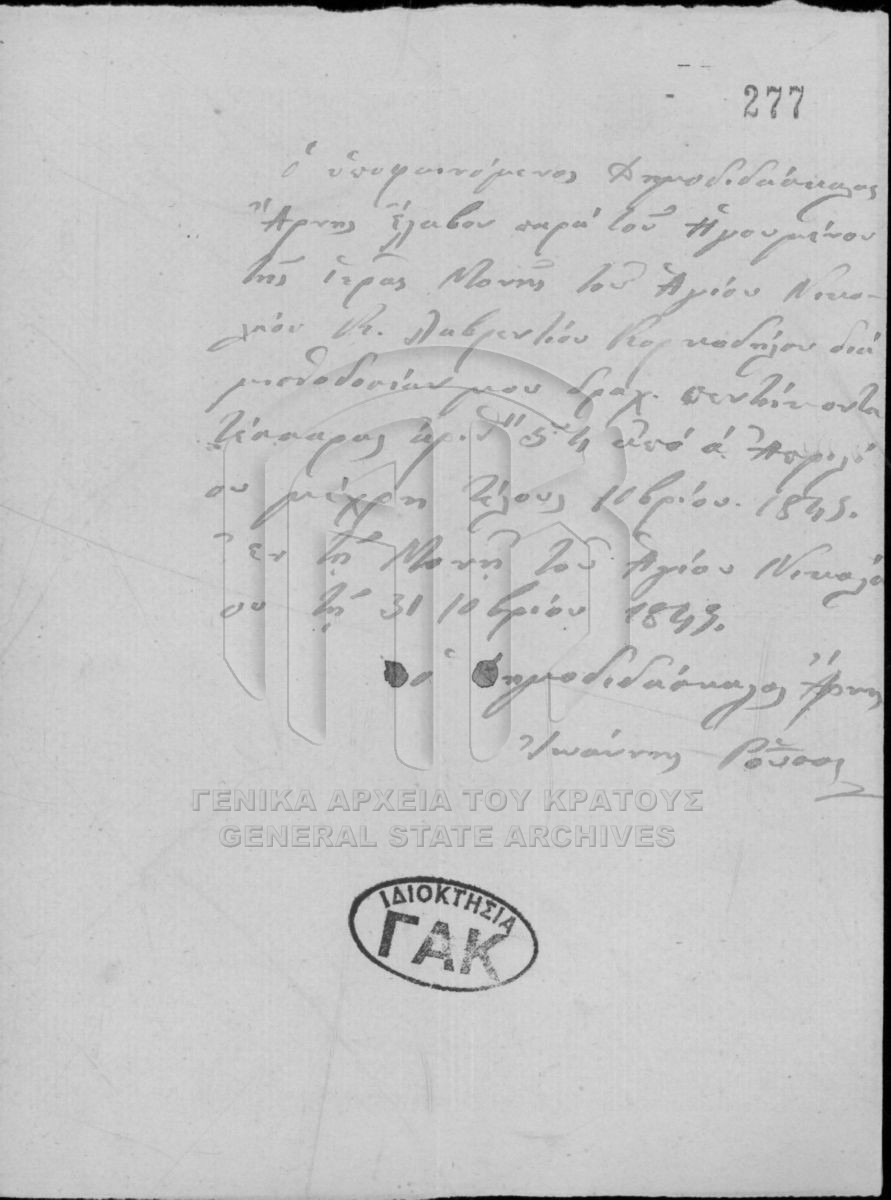 277
Ὁ ὑποφαινόμενος Δημοδιδάσκαλος
Ἄρνης ἔλαβον παρὰ τοῦ Ἡγουμένου
τῆς ἱερᾶς Μονῆς τοῦ Ἁγίου Νικο-
λάου Κ. Λαβρεντίου διὰ
μισθοδοσίαν μου δραχ. πεντήκοντα
τέσσαρας ἀριθ 54 ἀπὸ ά. Ἀπριλί
ου μέχρη τέλους 10βρίου. 1845.
ἐν τῇ Μονῇ τοῦ Ἁγίου Νικολά
ου τῇ 31 10βρίου 1845.
ὁ Δημοδιδάσκαλος Ἄρνης
Ἰωάννης Ροῦσος
ΓΕΝΙΚΑ ΑΡΧΕΙΑ ΤΟΥ ΚΡΑΤΟΥΣ
GENERAL STATE ARCHIVES
ΙΔΙΟΚΤΗΣΙΑ
ΓΑΚ